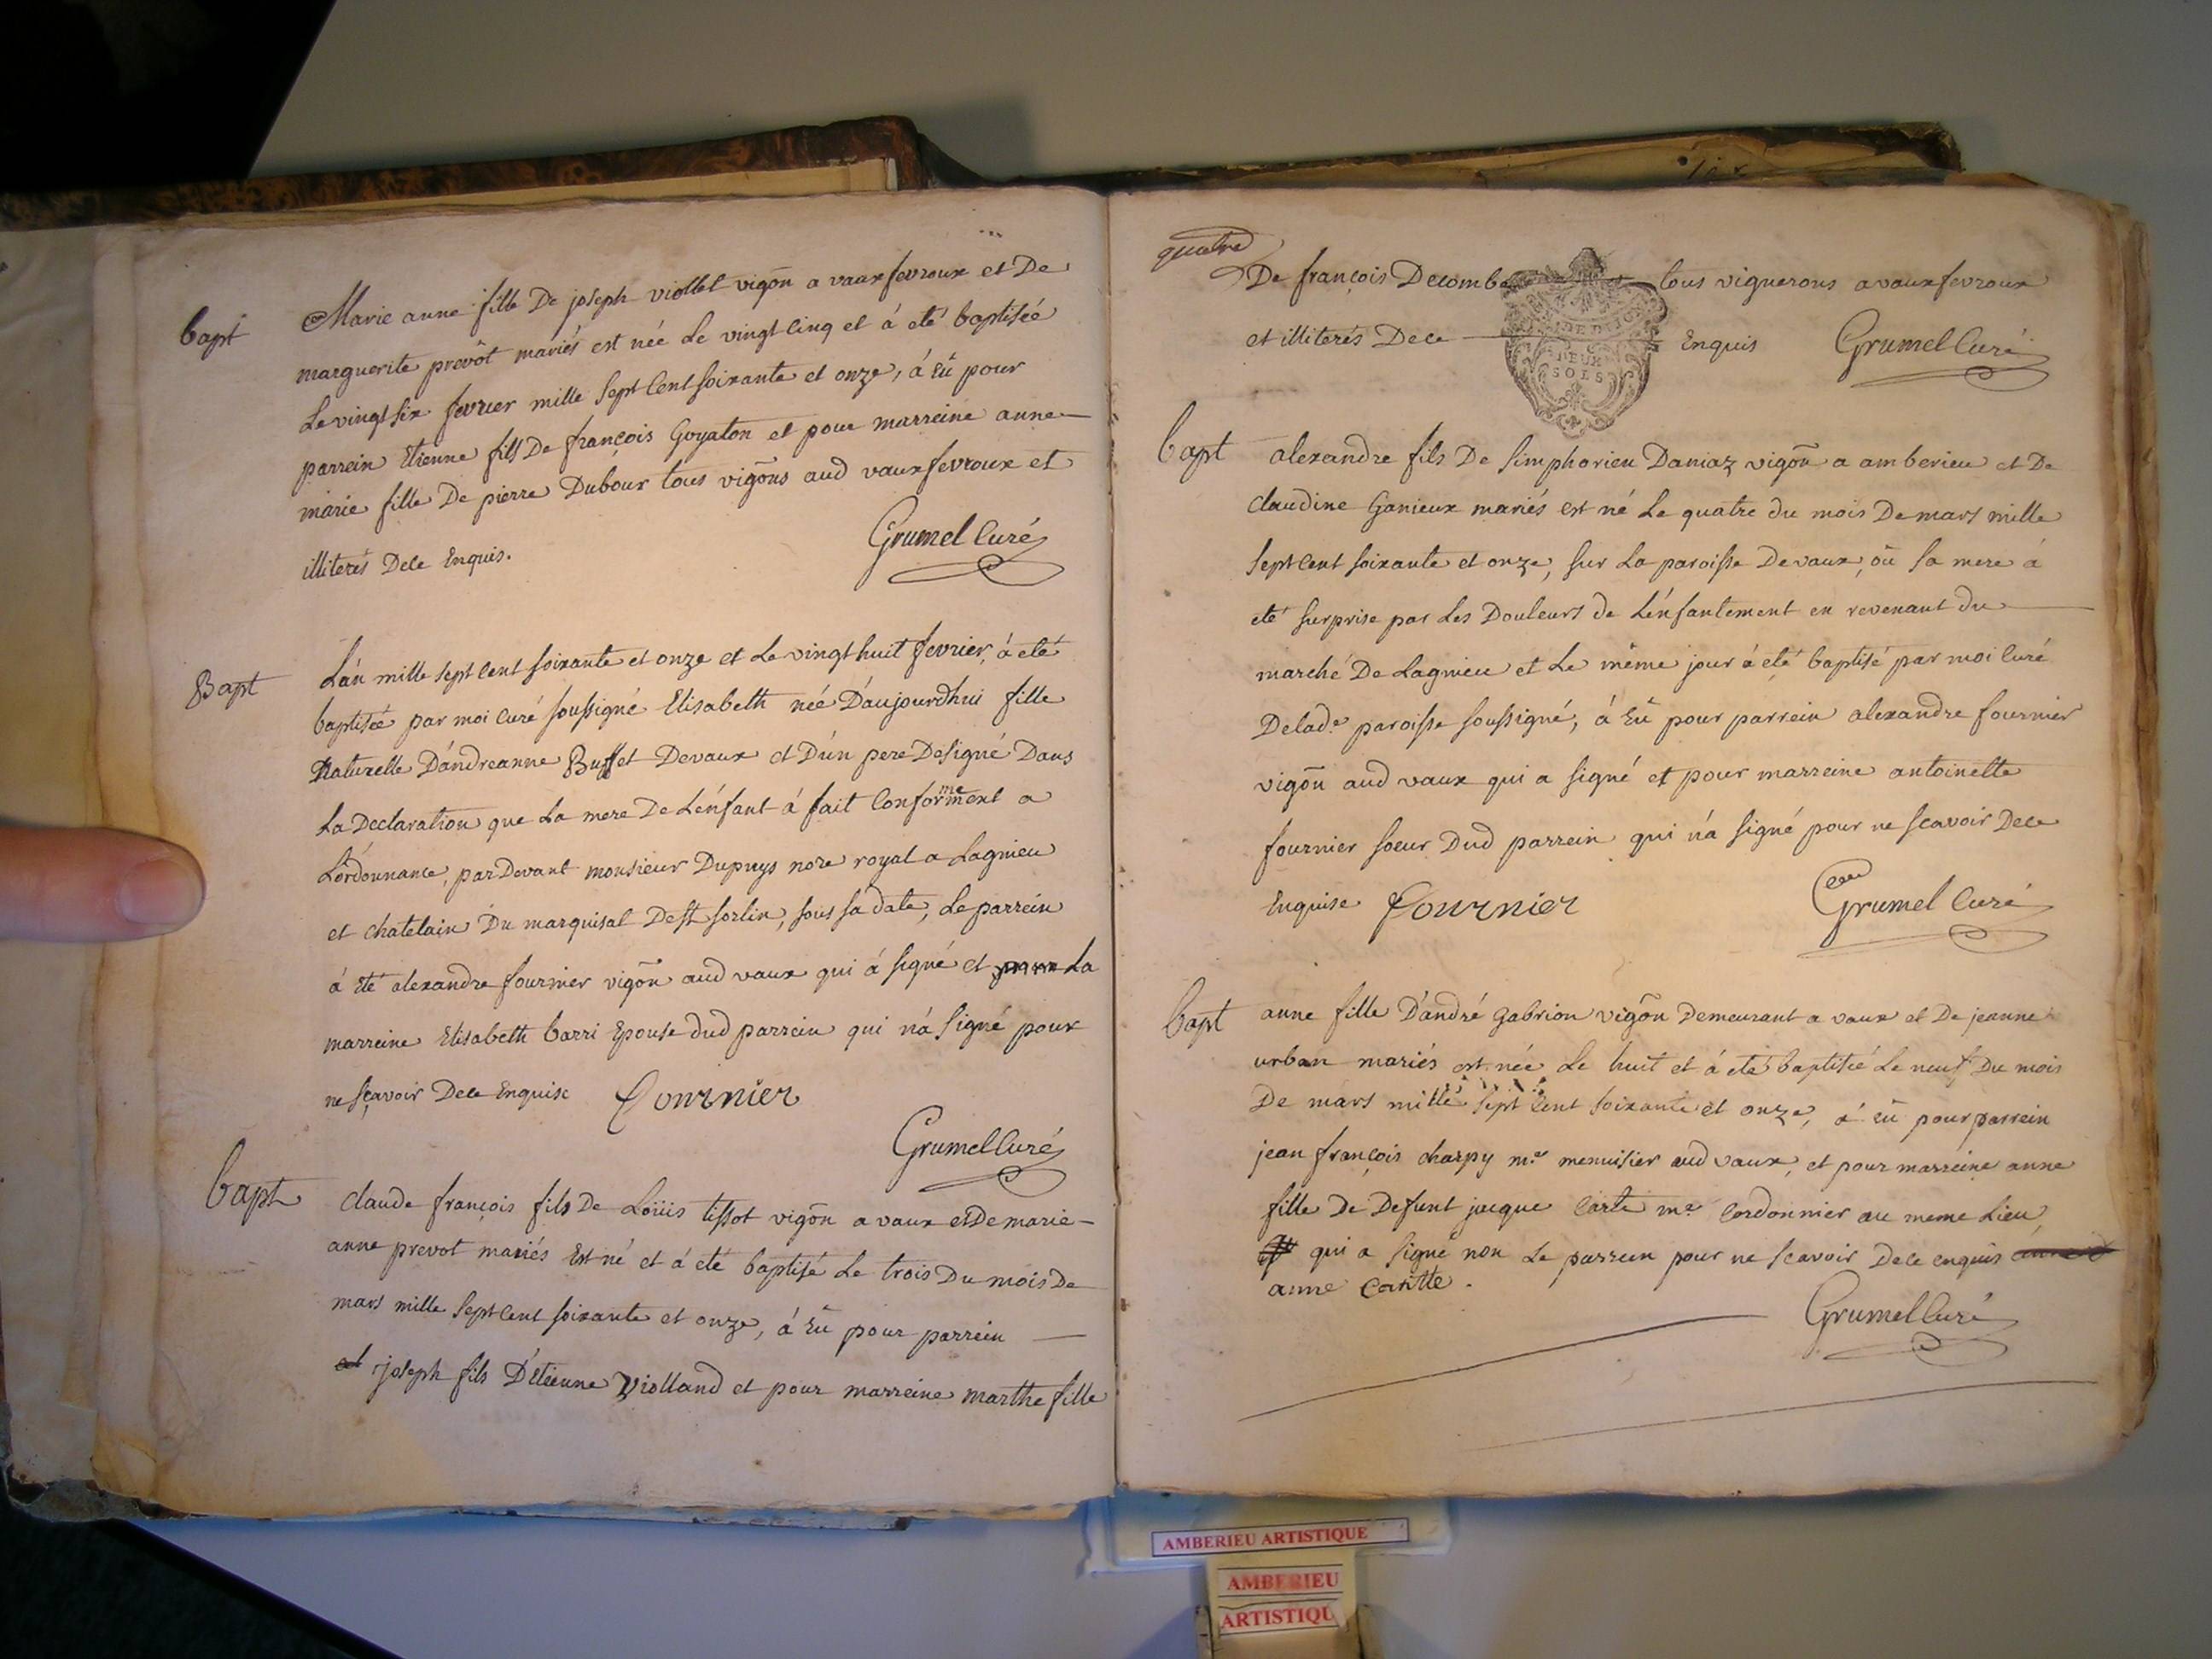 bapt
Marie anne fille De joseph viollet vigōn a vaux fevroux et De
marguerite prevôt mariés est née Le vingt cinq et á eté baptisée
Le vingt six fevrier mille sept cent soixante et onze, á Eû pour
parrein Etienne fils De françois Goyaton et pour marreine anne
marie fille De pierre Dubour tous vigōns aud vaux fevroux et
illiterés Dece Enquis.
Grumel Curé
Bapt
L'an mille sept cent soixante et onze et Le vingt huit fevrier, á eté
baptisée par moi Curé soussigné Elisabeth née D'aujourdhui fille
Naturelle D'andreanne Buffet Devaux et D'un pere Designé Dans
La Declaration que La mere De L'enfant á fait Conformement a
L'ordonnance, par Devant monsieur Dupuys nore royal a Lagnieu
et chatelain Du marquisat De st sorlin, sous sa date, Le parrein
á Eté alexandre fournier vigōn aud vaux qui á signé et pour La
marreine Elisabeth barri Epouse dud parrein qui n'á signé pour
ne sçavoir Dece Enquise Fournier
Grumel Curé
bapt
claude françois fils De Loüis tissot vigōn a vaux et De marie-
anne prevot mariés Est né et á eté baptisé Le trois Du mois De
mars mille sept cent soixante et onze, á Eû pour parrein
et joseph fils D'etienne Violland et pour marreine marthe fille
quatre
De françois Decombe tous vignerons a vaux fevroux
et illiterés Dece Enquis Grumel Curé
DEUX
SOLS
bapt
alexandre fils De simphorien Daniaz vigōn a amberieu et De
claudine Ganieux mariés est né Le quatre du mois De mars mille
sept cent soixante et onze, sur La paroisse De vaux, où sa mere á
eté surprise par Les Douleurs de L'enfantement en revenant du
marché De Lagnieu et Le même jour á eté baptisé par moi Curé
De lad.e paroisse soussigné, á Eû pour parrein alexandre fournier
vigōn aud vaux qui a signé et pour marreine antoinette
fournier soeur Dud parrein qui n'á signé pour ne scavoir Dece
Enquise Fournier
Grumel Curé
bapt
anne fille D'andré Gabrion vigōn Demeurant a vaux et De jeanne
urban mariés est née Le huit et á eté baptisée Le neuf Du mois
De mars mille sept Cent soixante et onze, á eû pour parrein
jean françois charpy m.e menuisier aud vaux, et pour marreine anne
fille De Defunt jacque Carte m.e Cordonnier au meme Lieu,
qui a signé non Le parrein pour ne scavoir Dece enquis
anne Cartte.
Grumel Curé
AMBERIEU ARTISTIQUE
AMBERIEU
ARTISTIQU